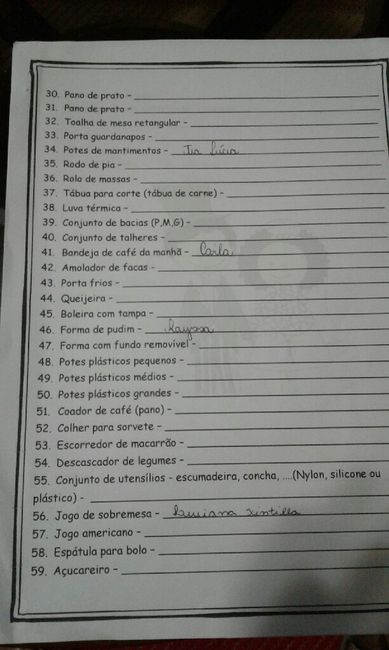 30. Pano de prato -
31. Pano de prato -
32. Toalha de mesa retangular -
33. Porta guardanapos -
34. Potes de mantimentos - Tia Lúcia
35. Rodo de pia -
36. Rolo de massas -
37. Tábua para corte (tábua de carne) -
38. Luva térmica -
39. Conjunto de bacias (P,M,G) -
40. Conjunto de talheres -
41. Bandeja de café da manhã - Carla
42. Amolador de facas -
43. Porta frios -
44. Queijeira -
45. Boleira com tampa -
46. Forma de pudim - Rayssa
47. Forma com fundo removível -
48. Potes plásticos pequenos -
49. Potes plásticos médios -
50. Potes plásticos grandes -
51. Coador de café (pano) -
52. Colher para sorvete -
53. Escorredor de macarrão -
54. Descascador de legumes -
55. Conjunto de utensílios - escumadeira, concha, ....(Nylon, silicone ou
plástico) -
56. Jogo de sobremesa -
57. Jogo americano -
58. Espátula para bolo -
59. Açucareiro -